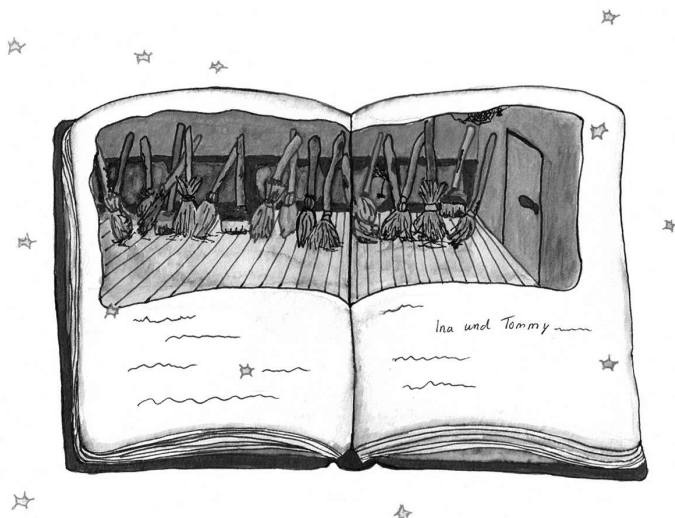 Ina und Tommy